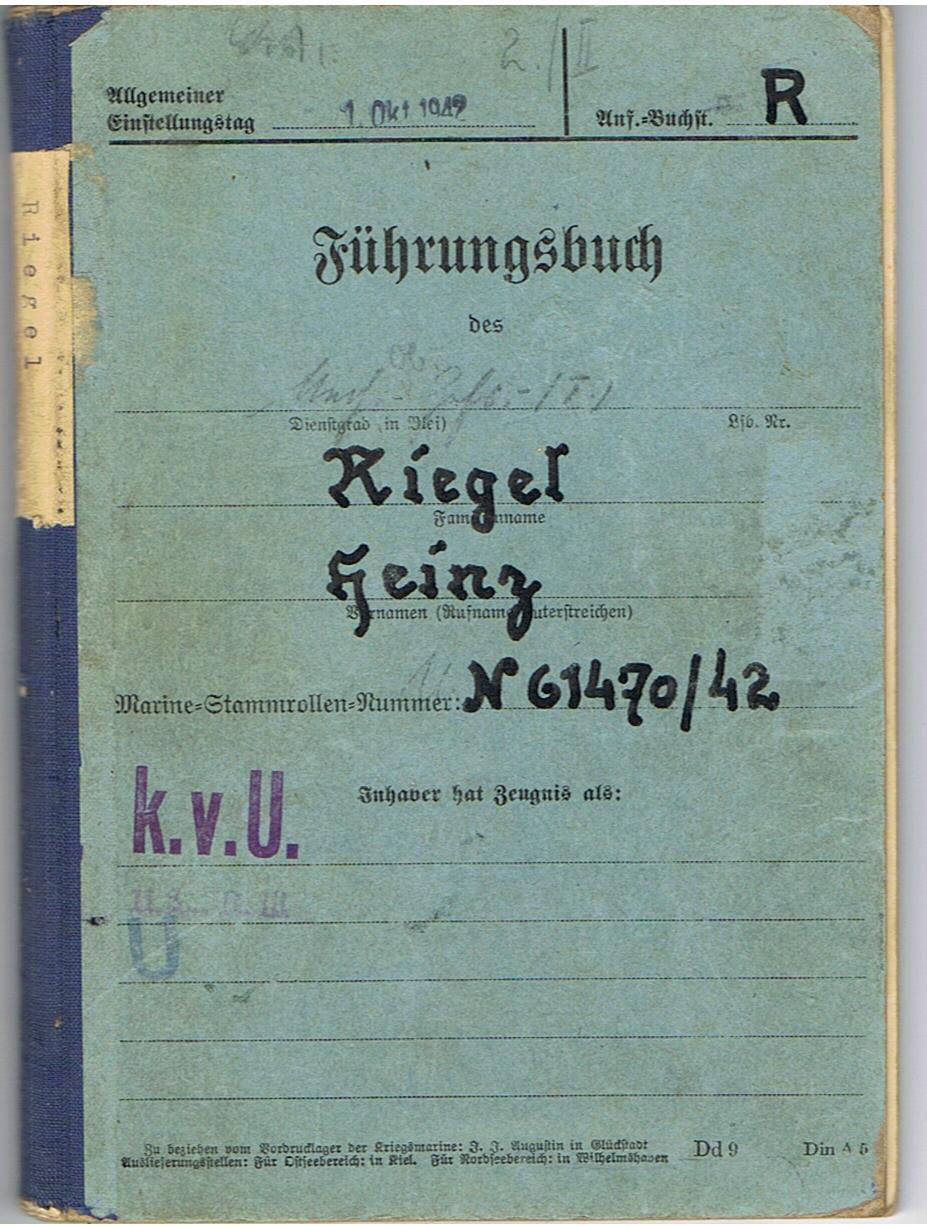 2. / II
Allgemeiner
Einstellungstag 1. Okt 1942
Anf.-Buchst. R
Riegel
Führungsbuch
des
Dienstgrad (in Blei) Lfd. Nr.
Riegel
Familienname
Heinz
Vornamen (Rufname unterstreichen)
Marine-Stammrollen-Nummer: N 61470/42
k.v.U. Inhaber hat Zeugnis als:
U
Zu beziehen vom Vordrucklager der Kriegsmarine: J. J. Augustin in Glückstadt
Auslieferungsstellen: Für Ostseebereich: in Kiel. Für Nordseebereich: in Wilhelmshaven Dd 9 Din A 5